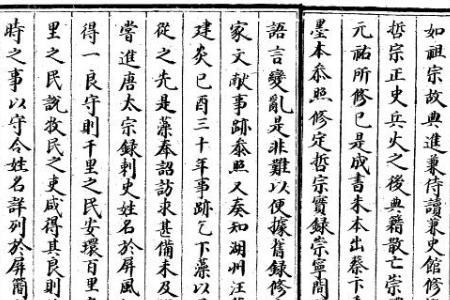 如祖宗故典進兼侍讀兼史館修
哲宗正史兵火之後典籍散亡崇
元祐所修已是成書朱本出蔡卞
墨本叅照修定哲宗實錄崇寧間
語言變亂是非難以便據舊録修
家文獻事跡叅照又奏知湖州汪
建炎已酉三十年事跡乞下藻以
從之先是藻奉詔訪求甚備未及
嘗進唐太宗録刺史姓名於屏風
得一良守則千里之民安環百里
里之民說牧民之吏咸得其良則
時之事以守令姓名詳列於屏簡